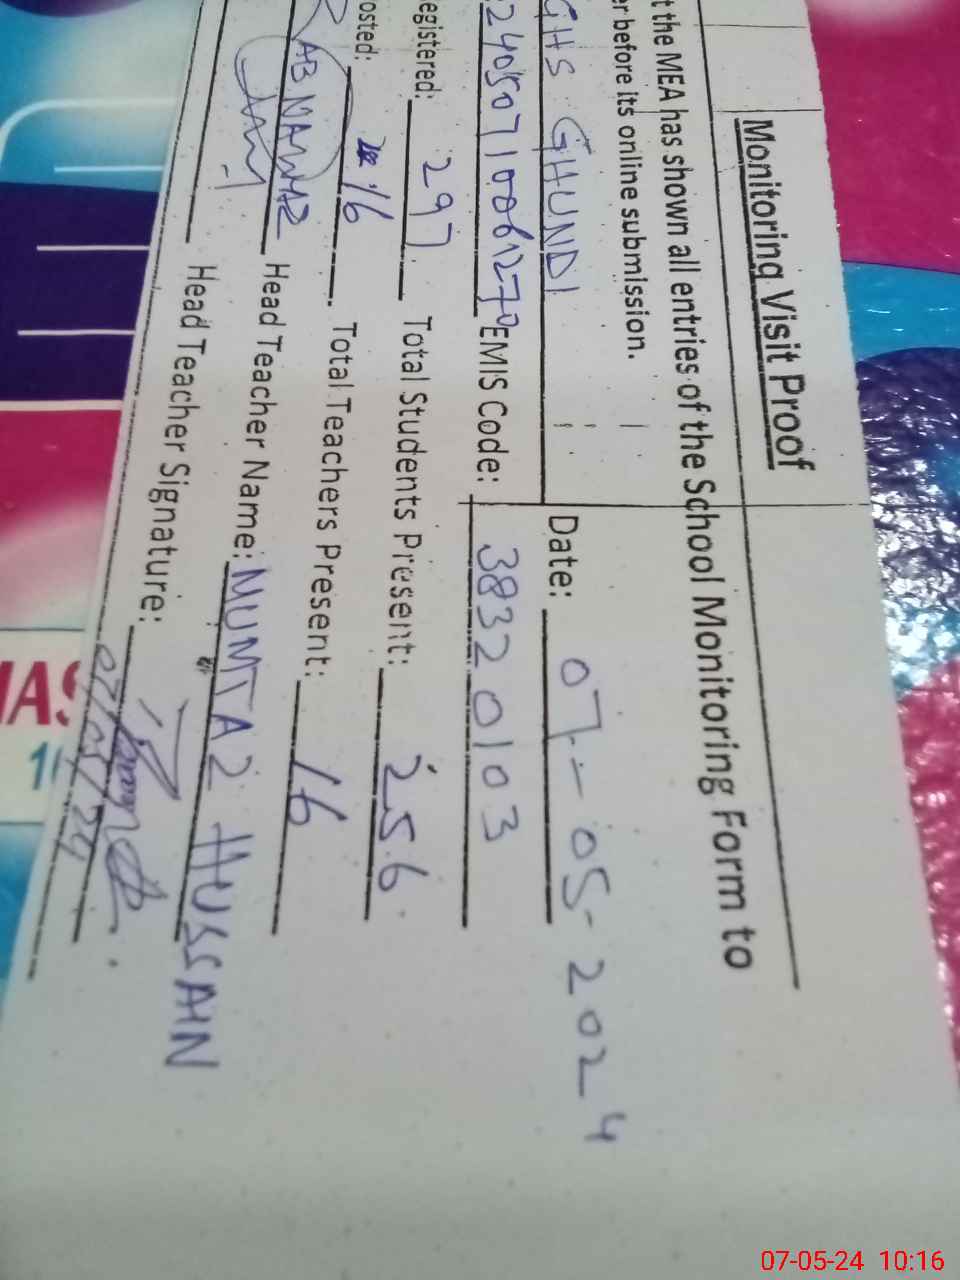 Monitoring Visit Proof
t the MEA has shown all entries of the School Monitoring Form to
er before its online submission.
GHS GHUNDI Date: 07-05-2024
EMIS Code: 38320103
egistered: 297 Total Students Present: 256
osted: 16 Total Teachers Present: 16
NAWAZ Head Teacher Name: MUMTAZ HUSSAIN
Head Teacher Signature:
07/05/24
07-05-24 10:16